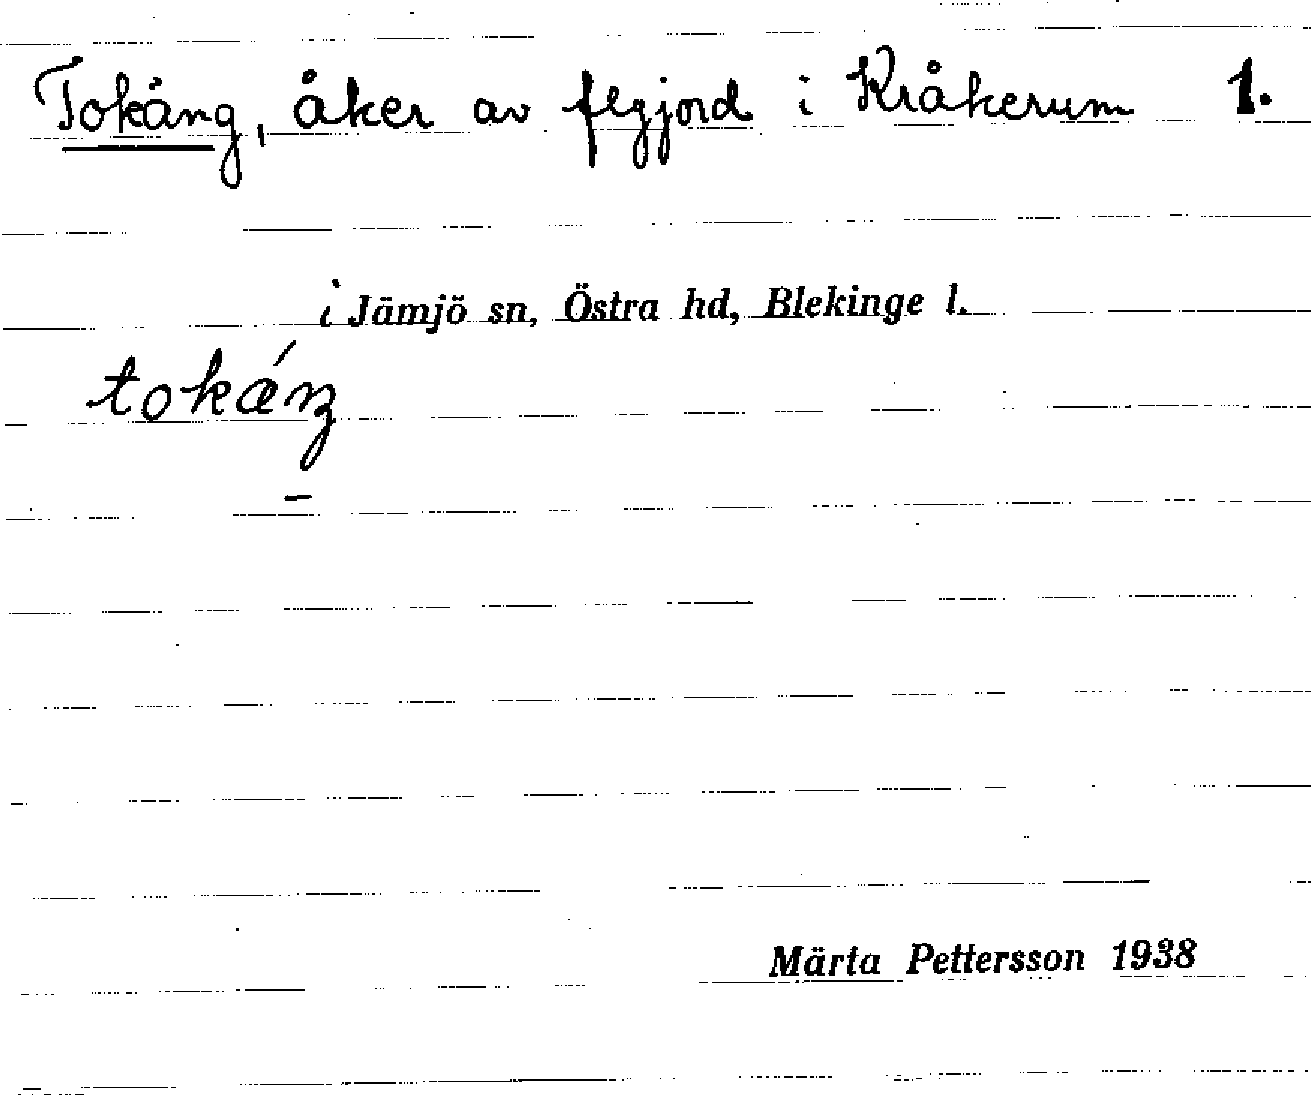 Tokäng, åker av flygjord i Kråkerum 1.
i Jämjö sn, Östra hd, Blekinge l.
tokǽŋ
Märta Pettersson 1938